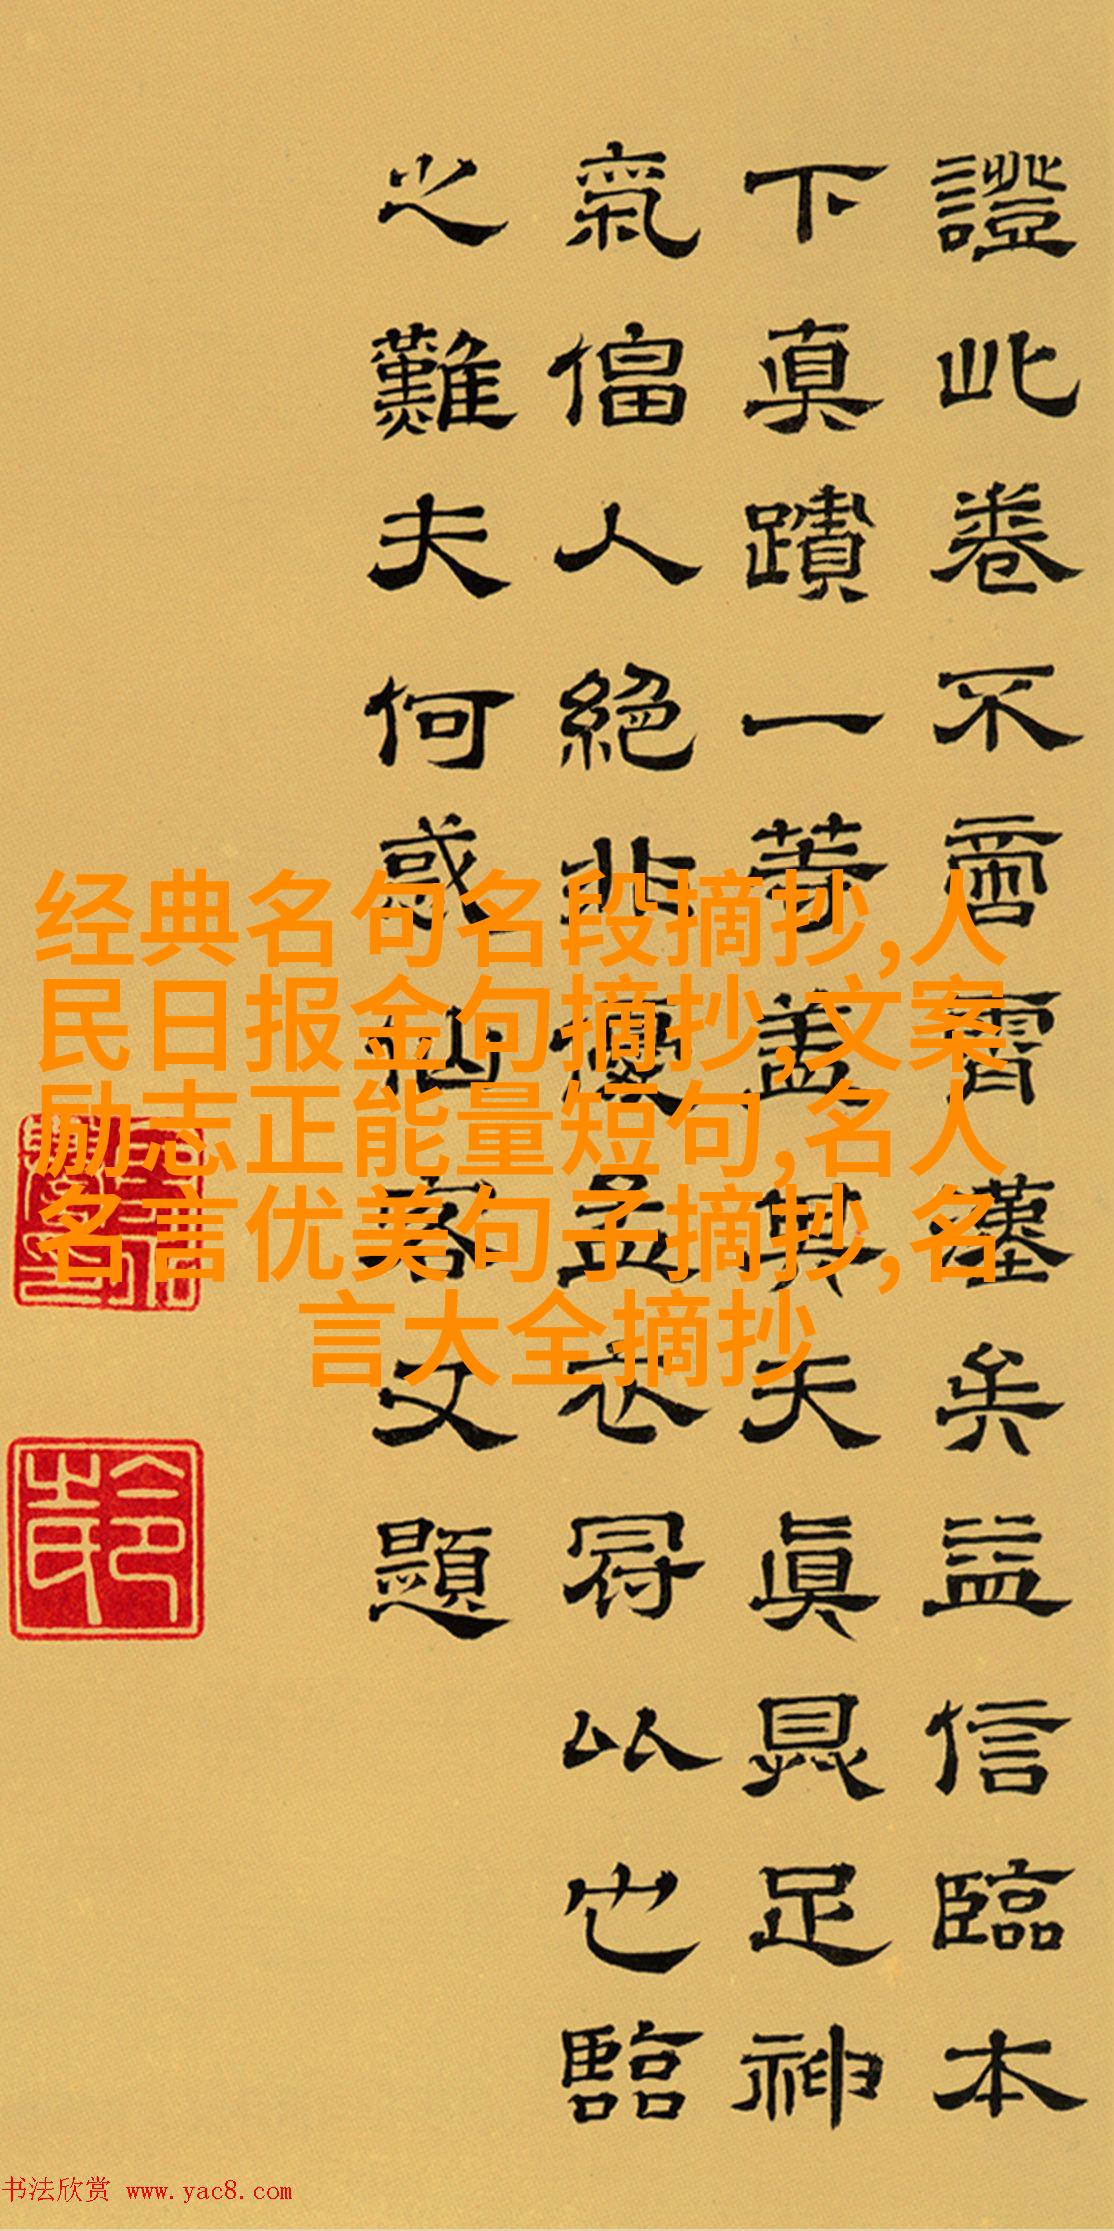 證此卷不啻霄壤矣益信臨本
下真蹟一等盖其天真具足神
氣偪人絕非優孟衣冠得以也臨
之難夫何惑
題
经典名句名段摘抄,人
民日报金句摘抄,文案
励志正能量短句,名人
名言优美句子摘抄,名
言大全摘抄
书法欣赏 www.yac8.com